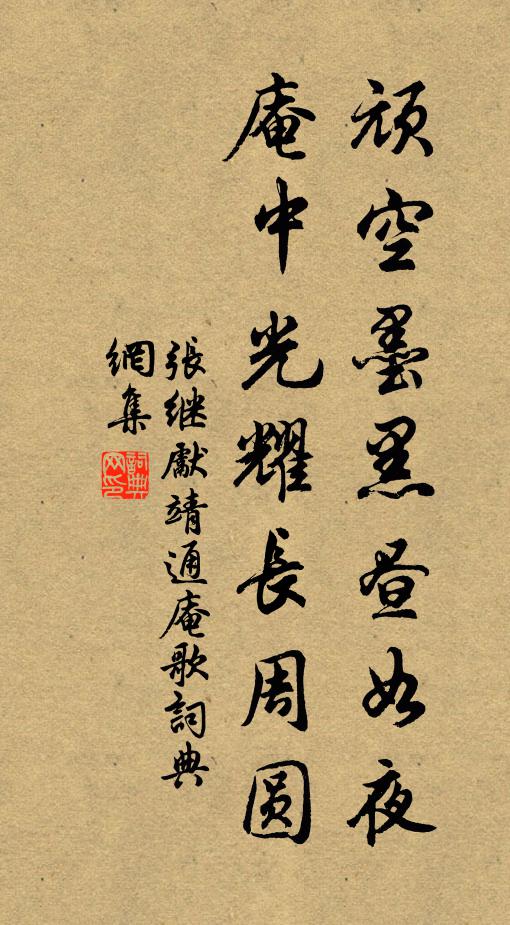 頑空墨黑昼如夜
庵中光耀長周圓
張継獻靖通庵歌詞典
網集
詞典
网印